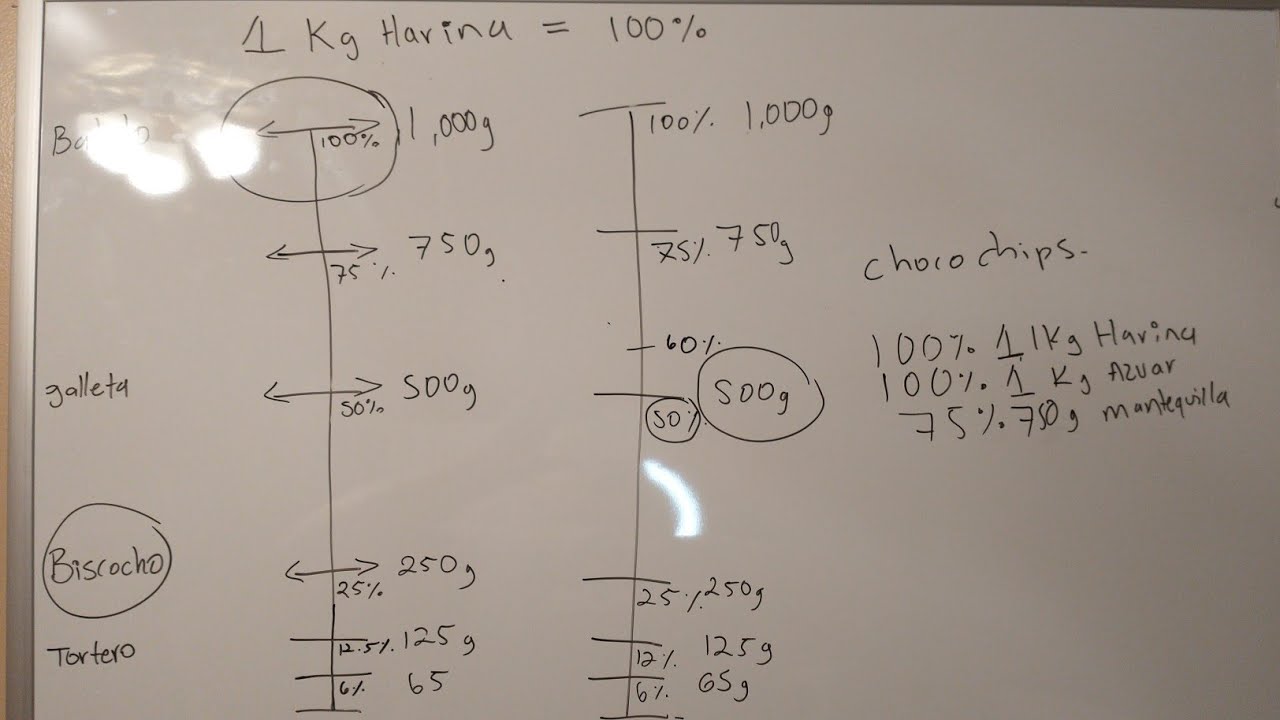 1 Kg Harina = 100%
100% 1,000g
75% 750g
galleta 50% 500g
Biscocho 25% 250g
Tortero 12.5% 125g
6% 65
100% 1,000g
75% 750g
60%
50% 500g
25% 250g
12% 125g
6% 65g
choco chips.
100% 1 1Kg Harina
100% 1 Kg Azuar
75% 750g mantequilla